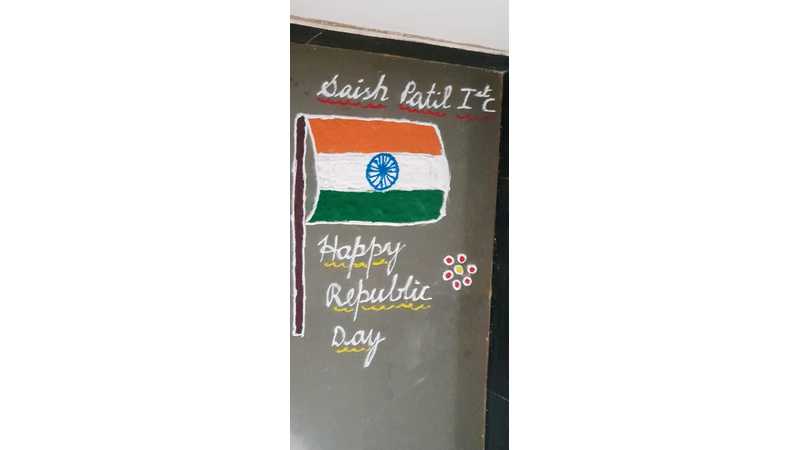 Saish Patil Ist C
Happy
Republic
Day